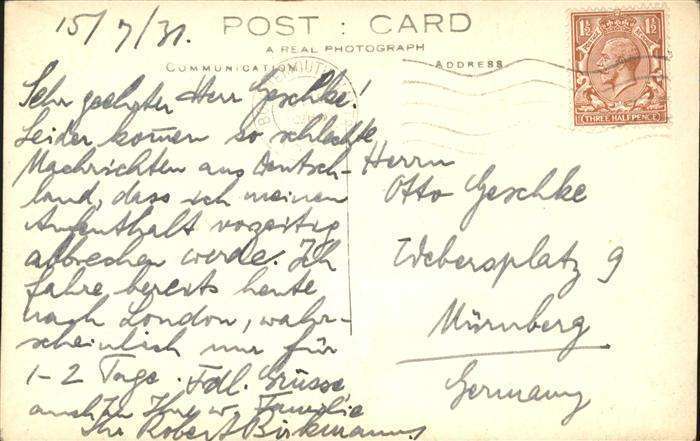 15/7/31.
POST : CARD
A REAL PHOTOGRAPH
COMMUNICATION
ADDRESS
1½ 1½
THREE HALFPENCE
Sehr geehrter Herr Geschke!
Leider kommen so schlechte
Nachrichten aus Deutsch-
land, dass ich meinen
Aufenthalt vorzeitig
abbrechen werde. Ich
fahre bereits heute
nach London, wahr-
scheinlich nur für
1-2 Tage. Fdl. Grüsse
auch an Ihre w. Familie
Ihr Robert
Herrn
Otto Geschke
Webersplatz 9
Nürnberg
Germany